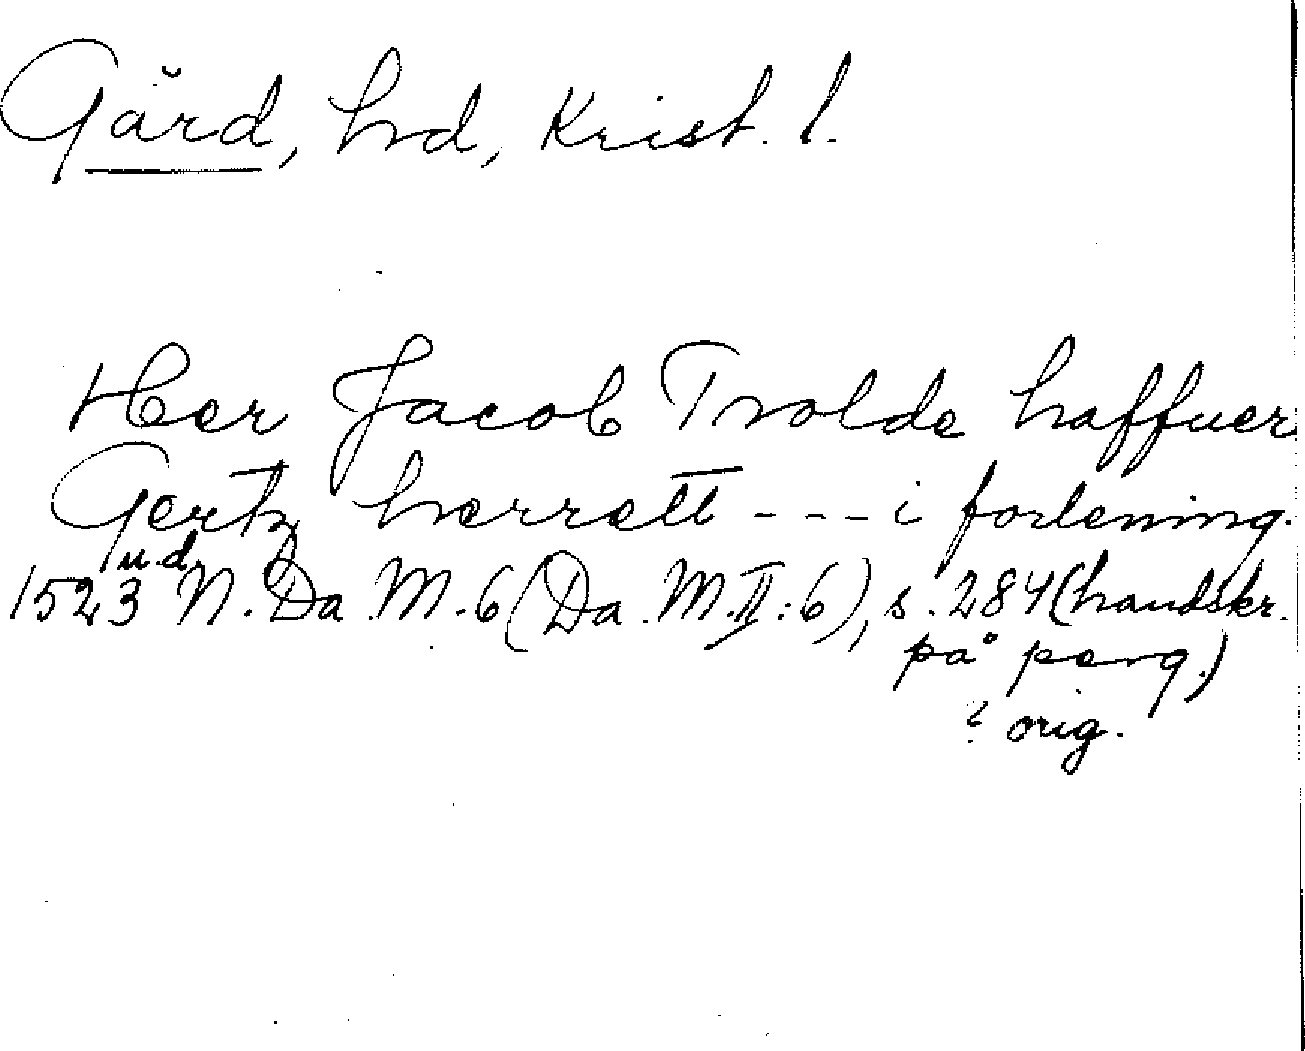 Gärd, hd, Krist. l.
Her Jacob Trolde haffuer
Gertz herrett - - - i forlening.
1523 u.d. N. Da. M. 6 (Da. M. II: 6), s. 284 (handskr.
på perg.)
i orig.